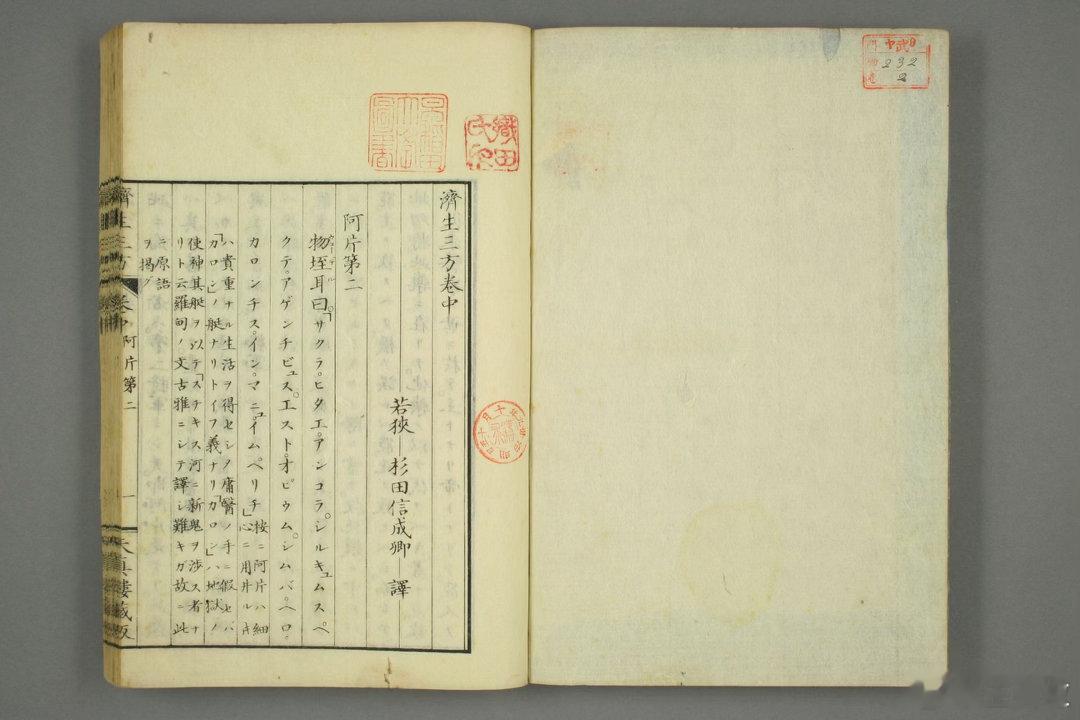 濟生三方卷中
若狹 杉田信成卿 譯
阿片第二
物埊耳曰「サクラ。ヒタエ。アンコラ。シルキュムスペ
クテ。アゲンチビュス。エスト。オピウム。シムバ。ヘロ。
カロンチス。イン。マニュイムペリチ」 按ニ阿片ハ細
心ニ用井ルキ
ハ貴重ナル生活ヲ得セシノ庸醫ノ手ニ假セバ
「カロン」ノ艇ナリトイフ義ナリ「カロン」ハ地獄ノ
使神其艇ヲ以テ「スチキス河ニ新鬼ヲ渉ス者ナ
リト云羅甸ノ文古雅ニシテ譯シ難キガ故ニ此
ニ原語
ヲ揭グ
濟生三方 卷中 阿片第二 一 天眞樓藏版
織田氏
232
2